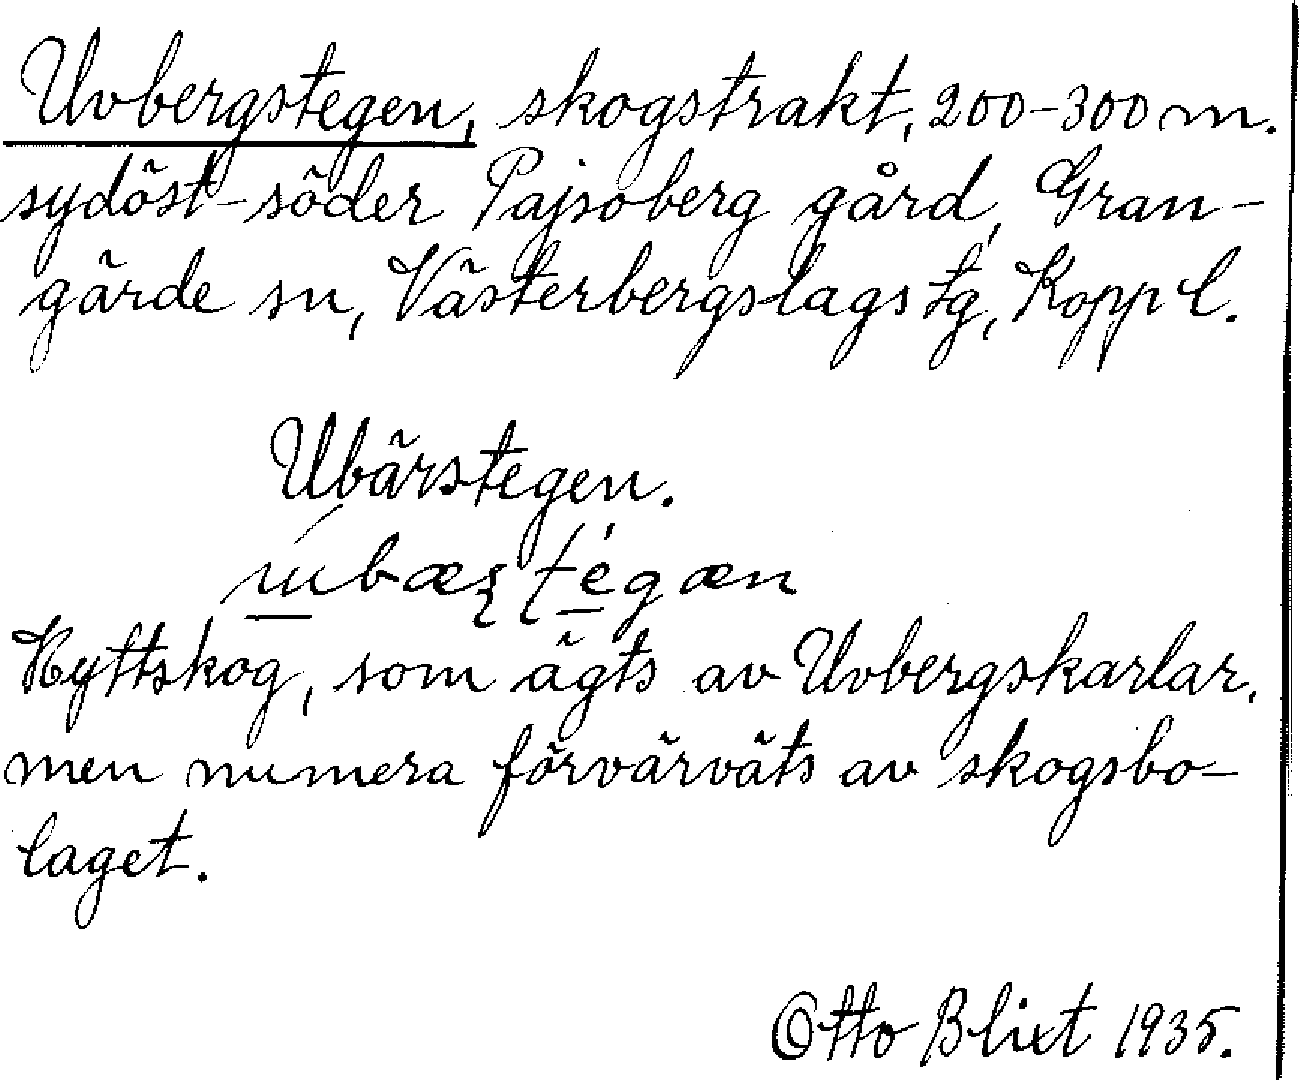 Uvbergstegen, skogstrakt, 200-300 m.
sydöst-söder Pajsoberg gård, Gran-
gärde sn, Västerbergslags tg, Kopp l.
Ubärstegen.
Nyttskog, som ägts av Uvbergskarlar,
men numera förvärväts av skogsbo-
laget.
Otto Blixt 1935.